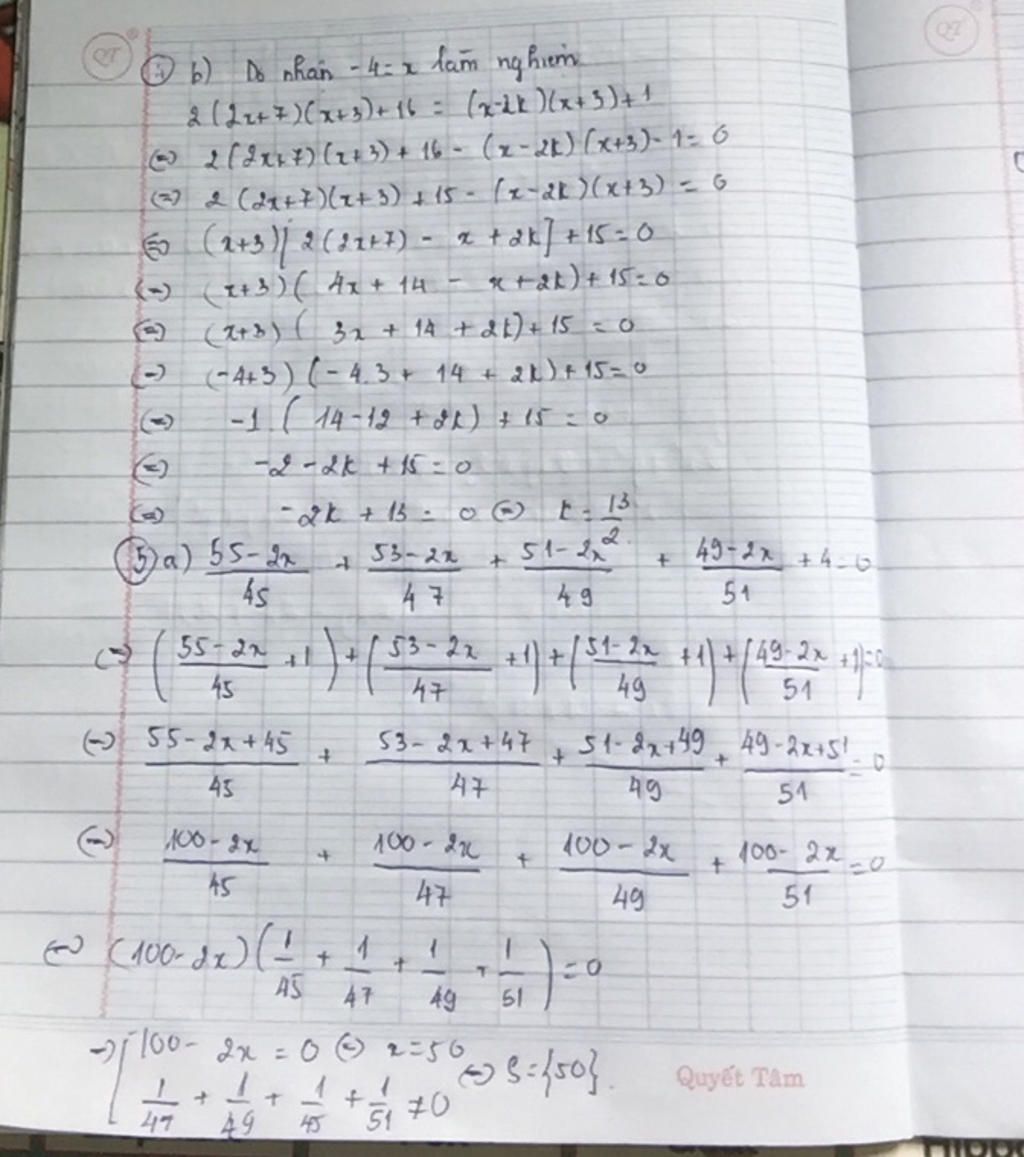 QT
QT
4 b) Do nhận -4 = x làm nghiệm
2(2x+7)(x+3)+16 = (x-2k)(x+3)+1
(=) 2(2x+7)(x+3) + 16 - (x-2k)(x+3) - 1 = 0
(=) 2(2x+7)(x+3) + 15 - (x-2k)(x+3) = 0
(=) (x+3)[2(2x+7) - x + 2k] + 15 = 0
(=) (x+3)(4x + 14 - x + 2k) + 15 = 0
(=) (x+3)(3x + 14 + 2k) + 15 = 0
(=) (-4+3)(-4.3 + 14 + 2k) + 15 = 0
(=) -1(14-12 + 2k) + 15 = 0
(=) -2 - 2k + 15 = 0
(=) -2k + 13 = 0 (=) k = 13/2
5) a) 55-2x/45 + 53-2x/47 + 51-2x/49 + 49-2x/51 + 4 = 0
(=) (55-2x/45 + 1) + (53-2x/47 + 1) + (51-2x/49 + 1) + (49-2x/51 + 1) = 0
(=) 55-2x+45/45 + 53-2x+47/47 + 51-2x+49/49 + 49-2x+51/51 = 0
(=) 100-2x/45 + 100-2x/47 + 100-2x/49 + 100-2x/51 = 0
(=) (100-2x)(1/45 + 1/47 + 1/49 + 1/51) = 0
=) [100 - 2x = 0 (=) x = 50
1/47 + 1/49 + 1/45 + 1/51 ≠ 0 (=) S = {50}.
Quyết Tâm